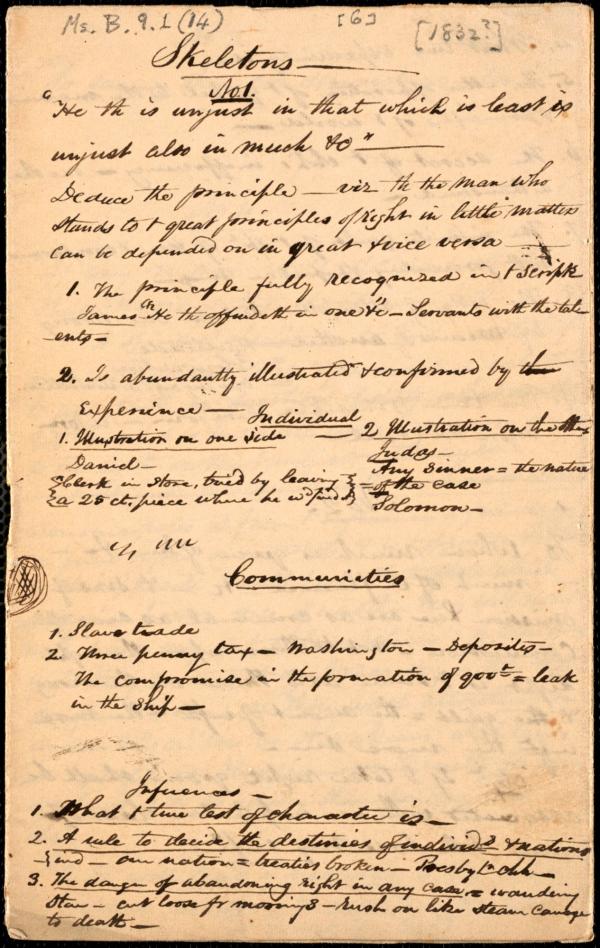 Ms. B. 9.1 (14) [6] [1832?]
Skeletons
No 1.
"He th is unjust in that which is least is
unjust also in much &c"
Deduce the principle – viz th the man who
stands to t great principles of right in little matters
can be depended on in great & vice versa
1. The principle fully recognized in t Script
James "He th offendeth in one &c" – Servants with the tal-
ents –
2. Is abundantly illustrated & confirmed by the
Experience –
Individual
1. Illustration on one side
Daniel –
Clerk in store, tried by leaving
a 25 ct. piece where he wd find it
2 Illustration on the
Judas –
Any Sinner = the nature
= of the case
Solomon –
Communities
1. Slave trade
2. Three penny tax – Washington – Deposites –
The compromise in the formation of govt = leak
in the Ship –
Inferences –
1. What t true test of character is –
2. A rule to decide the destinies of individs & nations
ind – our nation = treaties broken – Presby Chh –
3. The danger of abandoning right in any case = wandering
Star – cut loose fr moorings – rush on like steam Carriage
to death –